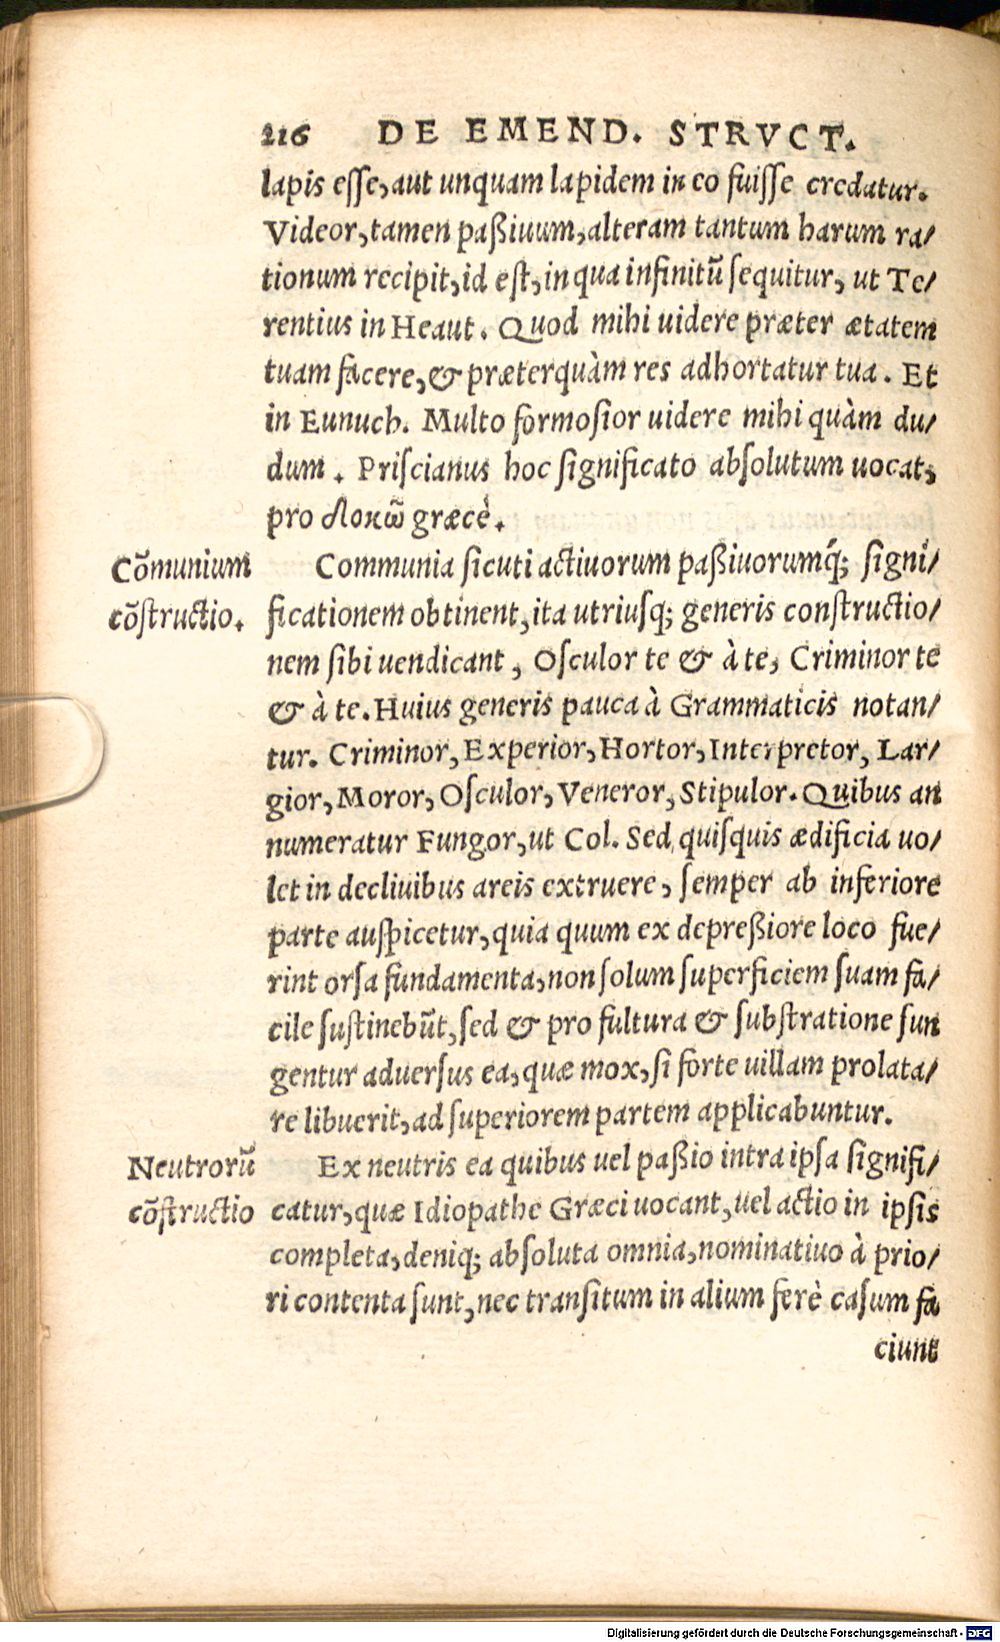 216 DE EMEND. STRVCT.
lapis esse, aut unquam lapidem in eo fuisse credatur.
Videor, tamen paßiuum, alteram tantum harum ra/
tionum recipit, id est, in qua infinitū sequitur, ut Te/
rentius in Heaut. Quod mihi uidere præter ætatem
tuam facere, & præterquàm res adhortatur tua. Et
in Eunuch. Multo formosior uidere mihi quàm du/
dum. Priscianus hoc significato absolutum uocat,
pro δοκῶ græcè.
Cōmunium
cōstructio.
Communia sicuti actiuorum paßiuorumq́; signi/
ficationem obtinent, ita utriusq; generis constructio/
nem sibi uendicant, Osculor te & à te, Criminor te
& à te. Huius generis pauca à Grammaticis notan/
tur. Criminor, Experior, Hortor, Interpretor, Lar/
gior, Moror, Osculor, Veneror, Stipulor. Quibus an
numeratur Fungor, ut Col. Sed quisquis ædificia uo/
let in decliuibus areis extruere, semper ab inferiore
parte auspicetur, quia quum ex depreßiore loco fue/
rint orsa fundamenta, non solum superficiem suam fa/
cile sustinebūt, sed & pro fultura & substratione fun
gentur aduersus ea, quæ mox, si forte uillam prolata/
re libuerit, ad superiorem partem applicabuntur.
Neutrorū
cōstructio
Ex neutris ea quibus uel paßio intra ipsa signifi/
catur, quæ Idiopathe Græci uocant, uel actio in ipsis
completa, deniq; absoluta omnia, nominatiuo à prio/
ri contenta sunt, nec transitum in alium ferè casum fa
ciunt
Digitalisierung gefördert durch die Deutsche Forschungsgemeinschaft - DFG